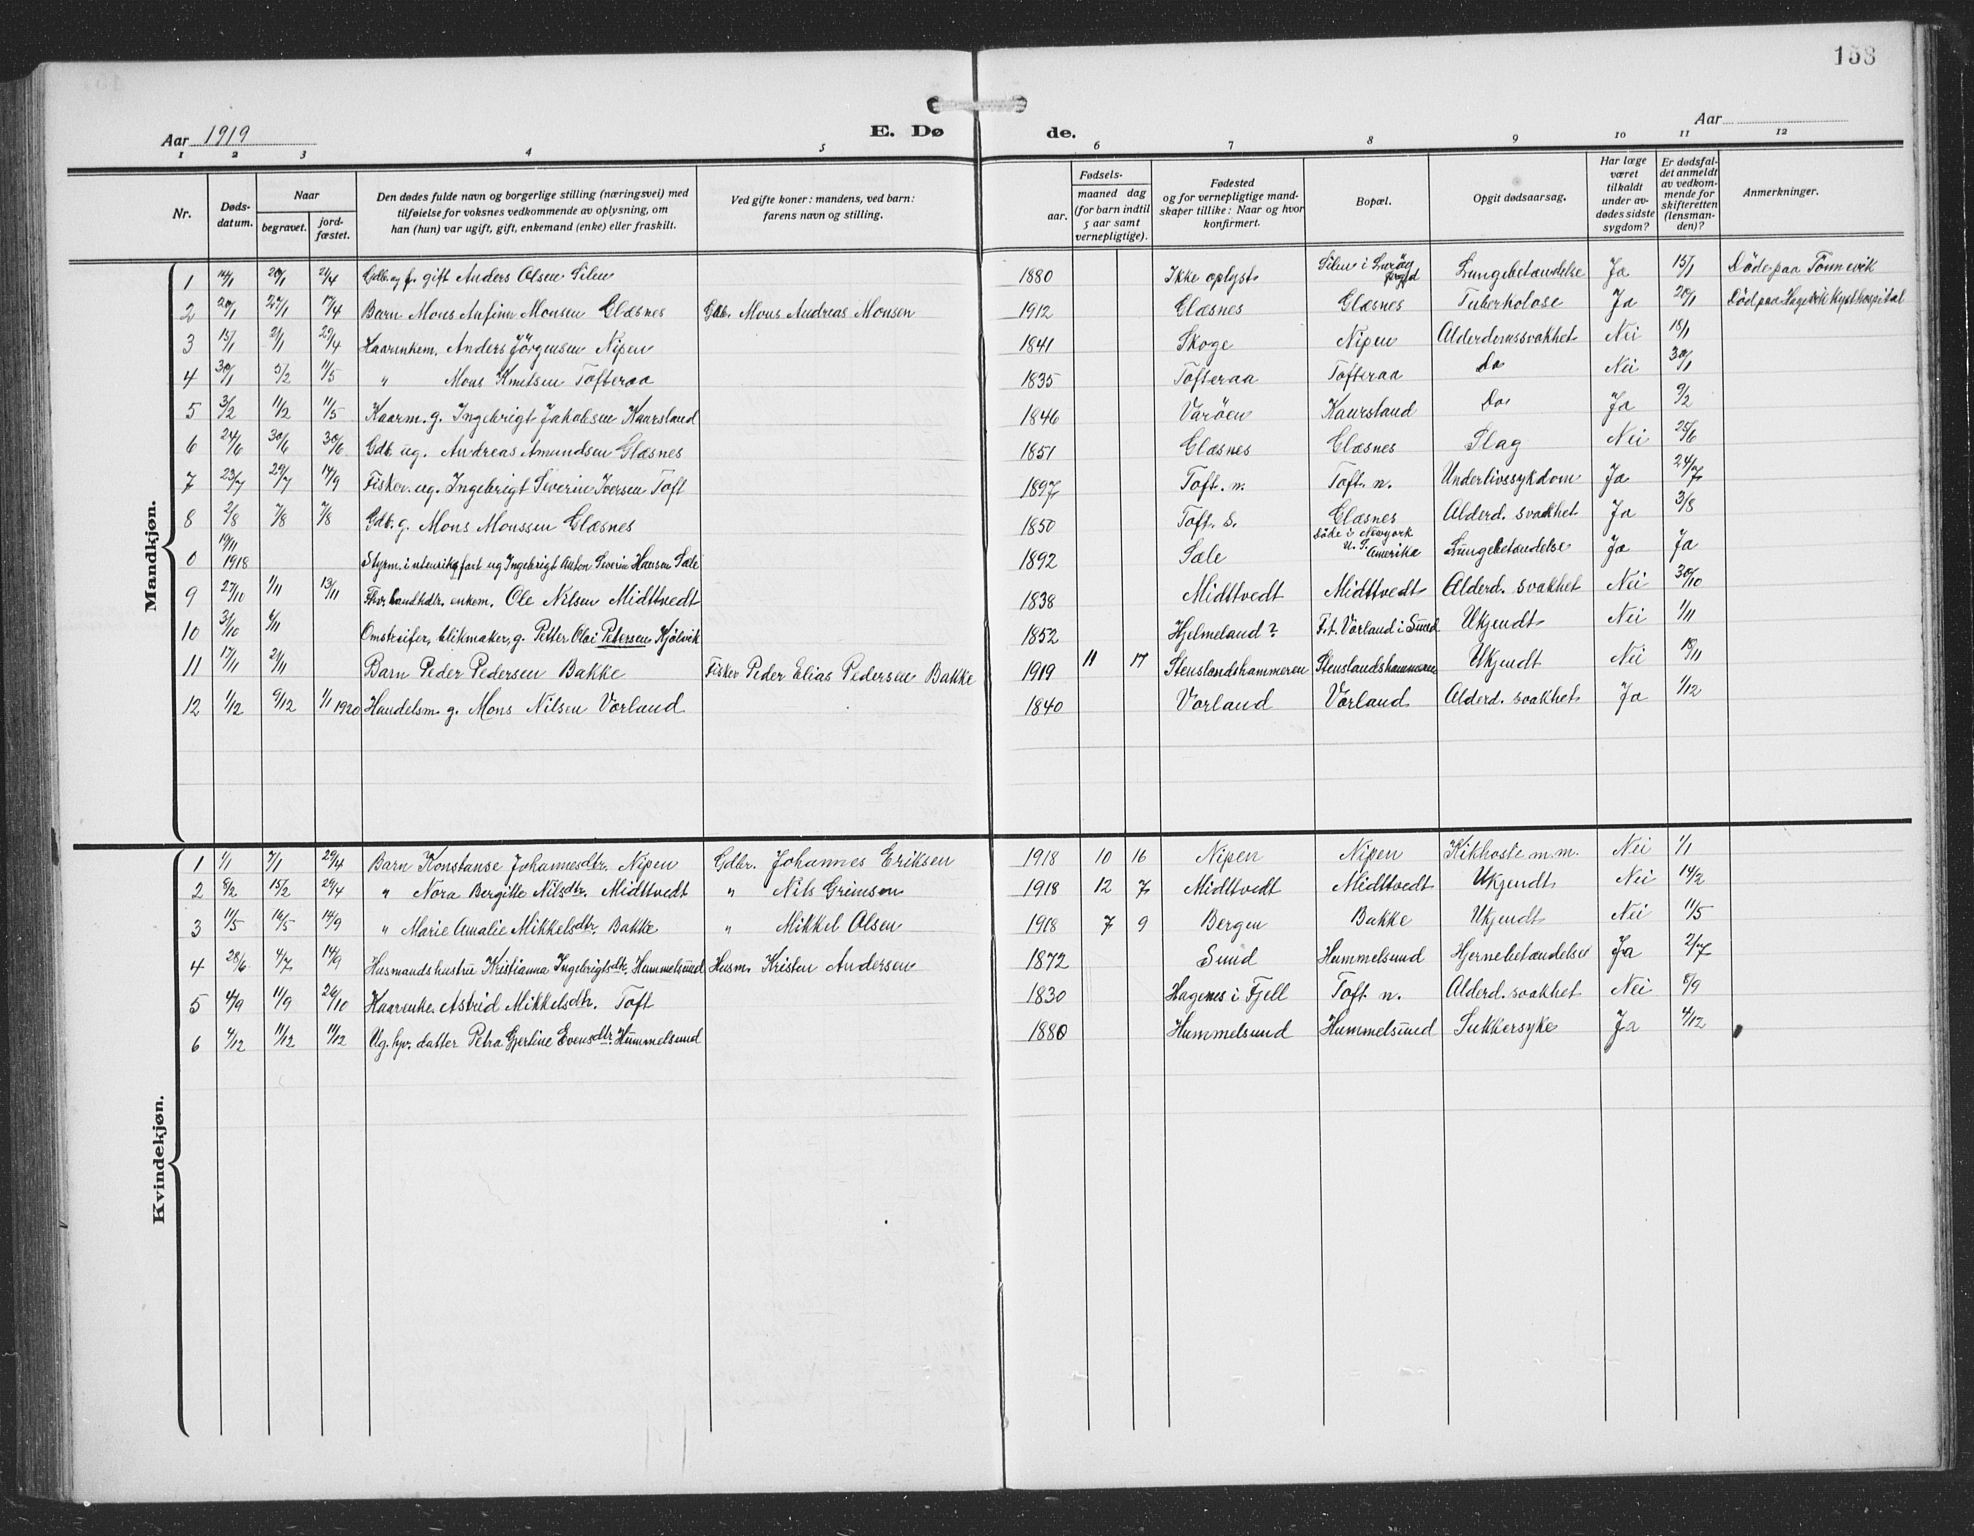 158
Aar 1919
E. Dø
de.
Aar
1 2 3 4 5 6 7 8 9 10 11 12
Nr. | Døds-datum. | Naar begravet. | jord-fæstet. | Den dødes fulde navn og borgerlige stilling (næringsvei) med tilføielse for voksnes vedkommende av oplysning, om han (hun) var ugift, gift, enkemand (enke) eller fraskilt. | Ved gifte koner: mandens, ved barn: farens navn og stilling. | Fødsels- aar. | maaned dag (for barn indtil 5 aar samt vernepligtige). | Fødested og for vernepligtige mandskaper tillike: Naar og hvor konfirmert. | Bopæl. | Opgit dødsaarsag. | Har læge været tilkaldt under avdødes sidste sygdom? | Er dødsfaldet anmeldt av vedkommende for skifteretten (lensmanden)? | Anmerkninger.
Mandkjøn.
1 14/1 20/1 21/4 Gdb. og f. gift Anders Olsen Silen 1880 Ikke oplyst Silen i Lurøy Lungebetændelse Ja 15/1 Døde paa Tönnevik
2 20/1 27/1 17/4 Barn Mons Anfinn Monsen Glæsnes Gdb. Mons Andreas Monsen 1912 Glæsnes Glæsnes Tuberkolose Ja 20/1 Död paa Hagevik Kysthospital
3 15/1 21/1 29/4 Haarenkem. Anders Jörgensen Nipen 1841 Skoge Nipen Alderdomssvakhet Nei 18/1
4 30/1 5/2 11/5 " Mons Knutsen Tofteraa 1835 Tofteraa Tofteraa Do Nei 30/1
5 3/2 11/2 11/5 Kaarm. g. Ingebrigt Jakobsen Kaursland 1846 Varöen Kaursland Do Ja 9/2
6 24/6 30/6 30/6 Gdb. ug. Andreas Amundsen Glæsnes 1851 Glæsnes Glæsnes Slag Nei 25/6
7 23/7 29/7 14/9 Fisker. ug. Ingebrigt Severin Iversen Toft 1897 Toft. n. Toft. n. Underlivssykdom Ja 24/7
8 2/8 7/8 7/8 Gdb. g. Mons Monssen Glæsnes 1850 Toft. s. Glæsnes Alderd. svakhet Ja 3/8
0 19/11 1918 Styrm. i utenriksfart ug Ingebrigt Anton Severin Hansen Sæle 1892 Sæle Döde i Newyork U. S. Amerika Lungebetændelse Ja Ja
9 27/10 1/11 13/11 Fhv. landhdlr. enkem. Ole Nilsen Midttvedt 1838 Midttvedt Midttvedt Alderd. svakhet Nei 30/10
10 3/10 6/11 Omstreifer, blikmaker, g. Petter Olai Petersen Kjölvik 1852 Hjelmeland? F.t. Vorland i Sund Ukjendt Nei 1/11
11 17/11 21/11 Barn Peder Pedersen Bakke Fisker Peder Elias Pedersen Bakke 1919 11 17 Stenslandshammeren Stenslandshammeren Ukjendt Nei 18/11
12 1/12 9/12 1/1 1920 Handelsm. g. Mons Nilsen Vorland 1840 Vorland Vorland Alderd. svakhet Ja 1/12
Kvindekjøn.
1 1/1 7/1 29/4 Barn Konstanse Johannesdtr. Nipen Gdbr. Johannes Eriksen 1918 10 16 Nipen Nipen Kikhoste m.m. Nei 1/1
2 8/2 15/2 29/4 " Nora Bergitte Nilsdtr. Midttvedt " Nils Grimson 1918 12 7 Midttvedt Midttvedt Ukjendt Nei 14/2
3 11/5 16/5 14/9 " Marie Amalie Mikkelsdtr. Bakke " Mikkel Olsen 1918 7 9 Bergen Bakke Ukjendt Nei 11/5
4 28/6 4/7 14/9 Husmandshustru Kristianna Ingebrigtsdtr. Hummelsund Husm. Kristen Andersen 1872 Sund Hummelsund Hjernebetændelse Ja 2/7
5 4/9 11/9 26/10 Haarenke. Astrid Mikkelsdtr. Toft 1830 Hagenes i Fjell Toft n. Alderd. svakhet Nei 5/9
6 4/12 11/12 11/12 Ug. hjv. datter Petra Gjertine Evensdtr. Hummelsund 1880 Hummelsund Hummelsund Sukkersyke Ja 4/12